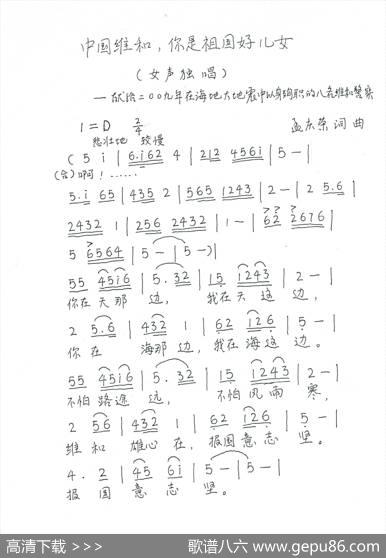 中国维和，你是祖国好儿女
（女声独唱）
—献给二00九年在海地大地震中以身殉职的八名维和警察
1=D 2/4 孟庆荣 词曲
悲壮地 较慢
( 5 i | 6.i62 4 | 212 456i | 5 - |
(合)啊！……
5.i 65 | 435 2 | 565 1243 | 2 - | 2 5.6 |
2432 1 | 256 2432 | 1 - | 62 2676 |
5 6564 | 5 - | 5 - ) |
55 456i6 | 5. 32 | 15 1243 | 2 - |
你在天那 边， 我在天这 边，
2 5.6 | 432 1 | 62 126 | 5 - |
你在 海那边，我在海这边。
55 456i6 | 5. 32 | 15 1243 | 2 - |
不怕路途 远， 不怕风雨 寒，
2 56 | 432 1 | 62 126 | 5 - |
维和 雄心在，报国意志 坚。
4. 2 | 45 6i | 5 - | 5 - |
报 国 意 志 坚。
高清下载 >>>> 歌谱八六 www.gepu86.com